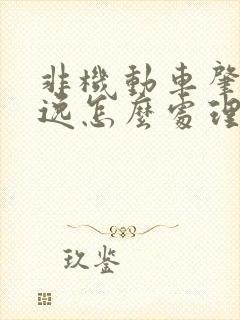 非機動車肇
逃怎麼處理
玖鉴